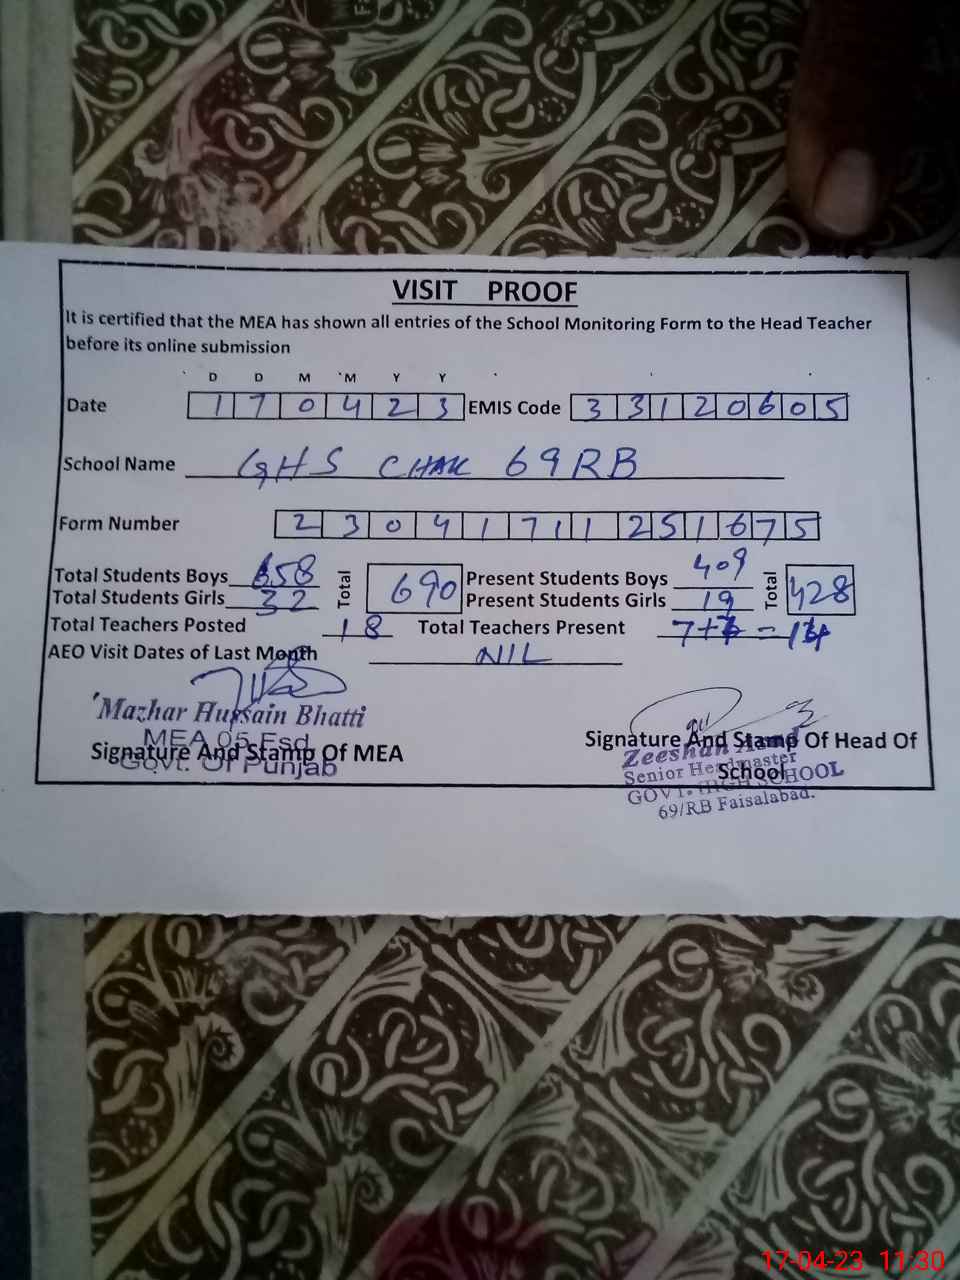 VISIT PROOF
It is certified that the MEA has shown all entries of the School Monitoring Form to the Head Teacher
before its online submission
D D M M Y Y
Date 1 7 0 4 2 3 EMIS Code 3 3 1 2 0 6 0 5
School Name GHS CHAK 69RB
Form Number 2 3 0 4 1 7 1 1 2 5 1 6 7 5
Total Students Boys 658 Total 690 Present Students Boys 409 Total 428
Total Students Girls 32 Present Students Girls 19
Total Teachers Posted 18 Total Teachers Present 7+ =
AEO Visit Dates of Last Month NIL
Mazhar Hussain Bhatti
MEA 05 Fsd
Govt. Of Punjab
Signature And Stamp Of MEA
Signature And Stamp Of Head Of
School
Zeeshan
Senior Headmaster
GOVT. HIGH SCHOOL
69/RB Faisalabad.
17-04-23 11:30